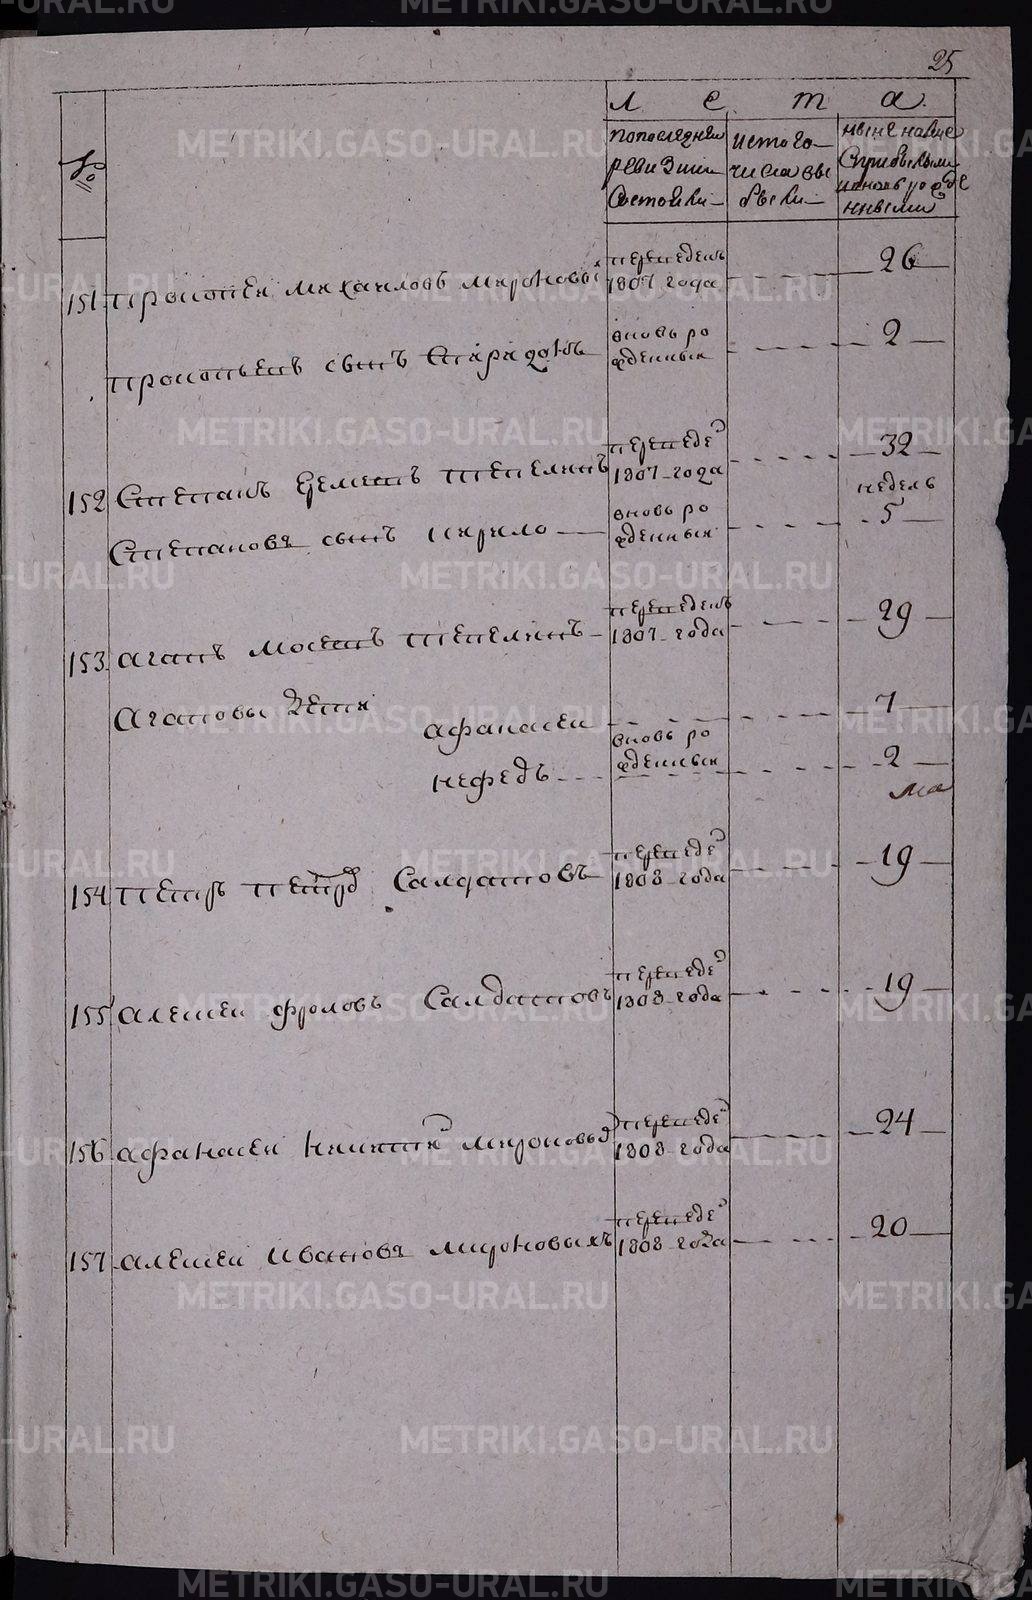 25
№
л е т а
по последнеи
ревизии
состояли
ис того
числа вы
были
ныне налице
с прибылыми
и вновь рожде
нными
151 прокопеи михаиловъ мироновы
переведенъ
1807 года
26
прокопьевъ сынъ спиридонъ
вновь ро
жденныи
2
152 степанъ еремеевъ тепелинъ
переведе
1807 года
32
степановъ сынъ кирило
вновь ро
жденныи
недель
5
153 агапъ мосеевъ тепелинъ
переведенъ
1807 года
29
агаповы дети
афанасеи
7
нефедъ
вновь ро
жденныи
2
ма
154 петръ петров салдатовъ
переведе
1808 года
19
155 алексеи фроловъ салдатовъ
переведе
1808 года
19
156 афанасеи никитин мироновы
переведе
1808 года
24
157 алексеи ивановъ мироновыхъ
переведе
1808 года
20
METRIKI.GASO-URAL.RU